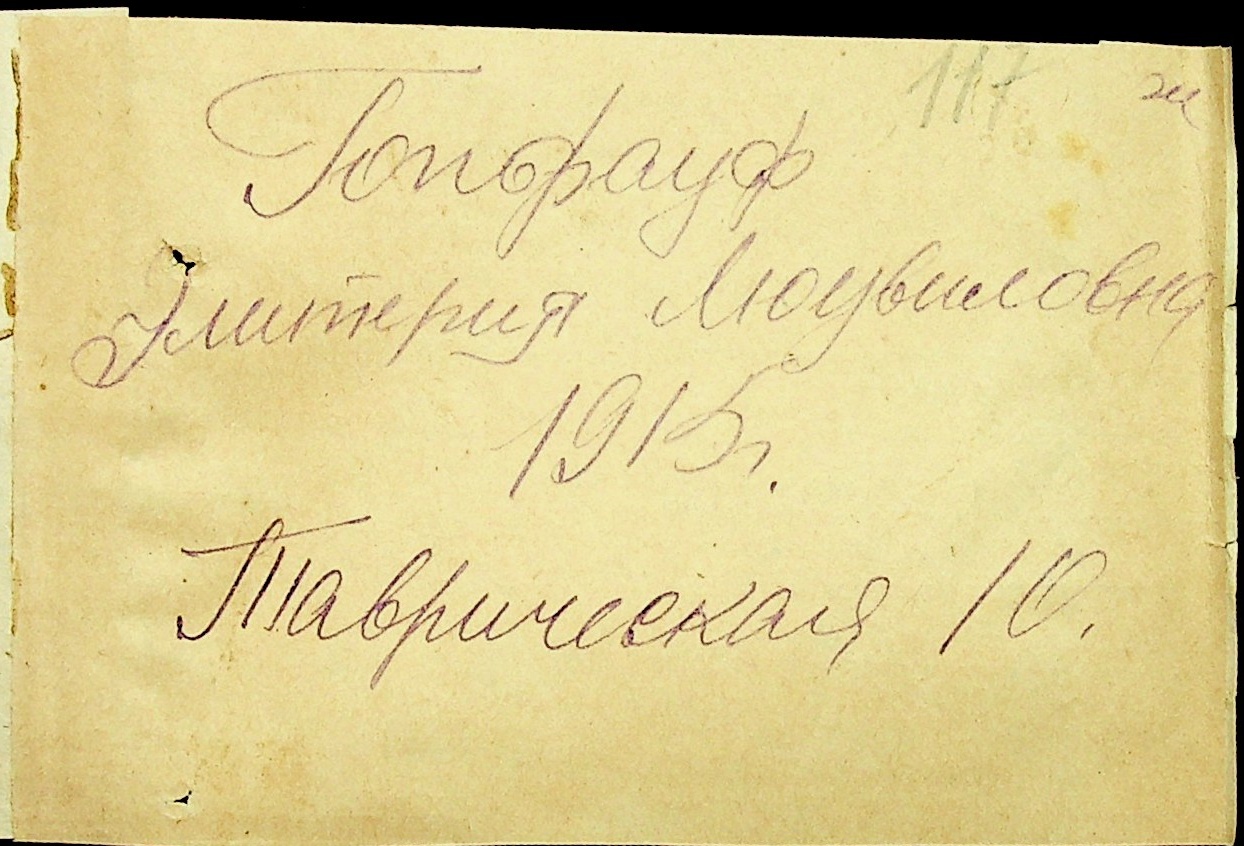 117 ж
Гопфауф
Эмитерия Люцвиловна
1915г.
Таврическая 10.